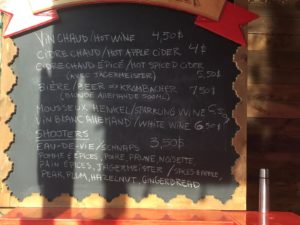 VIN CHAUD/HOT WINE 4,50$
CIDRE CHAUD/HOT APPLE CIDER 4$
CIDRE CHAUD ÉPICÉ/HOT SPICED CIDER
(AVEC JÄGERMEISTER) 5,50$
BIÈRE/BEER KROMBACHER 7,50$
(BLONDE ALLEMANDE 500ML)
MOUSSEUX HENKEL/SPARKLING WINE
VIN BLANC ALLEMAND/WHITE WINE 6,50$
SHOOTERS
EAU-DE-VIE/SCHNAPS 3,50$
POMME ÉPICES, POIRE, PRUNE, NOISETTE,
PAIN ÉPICES, JÄGERMEISTER / SPICED APPLE,
PEAR, PLUM, HAZELNUT, GINGERBREAD